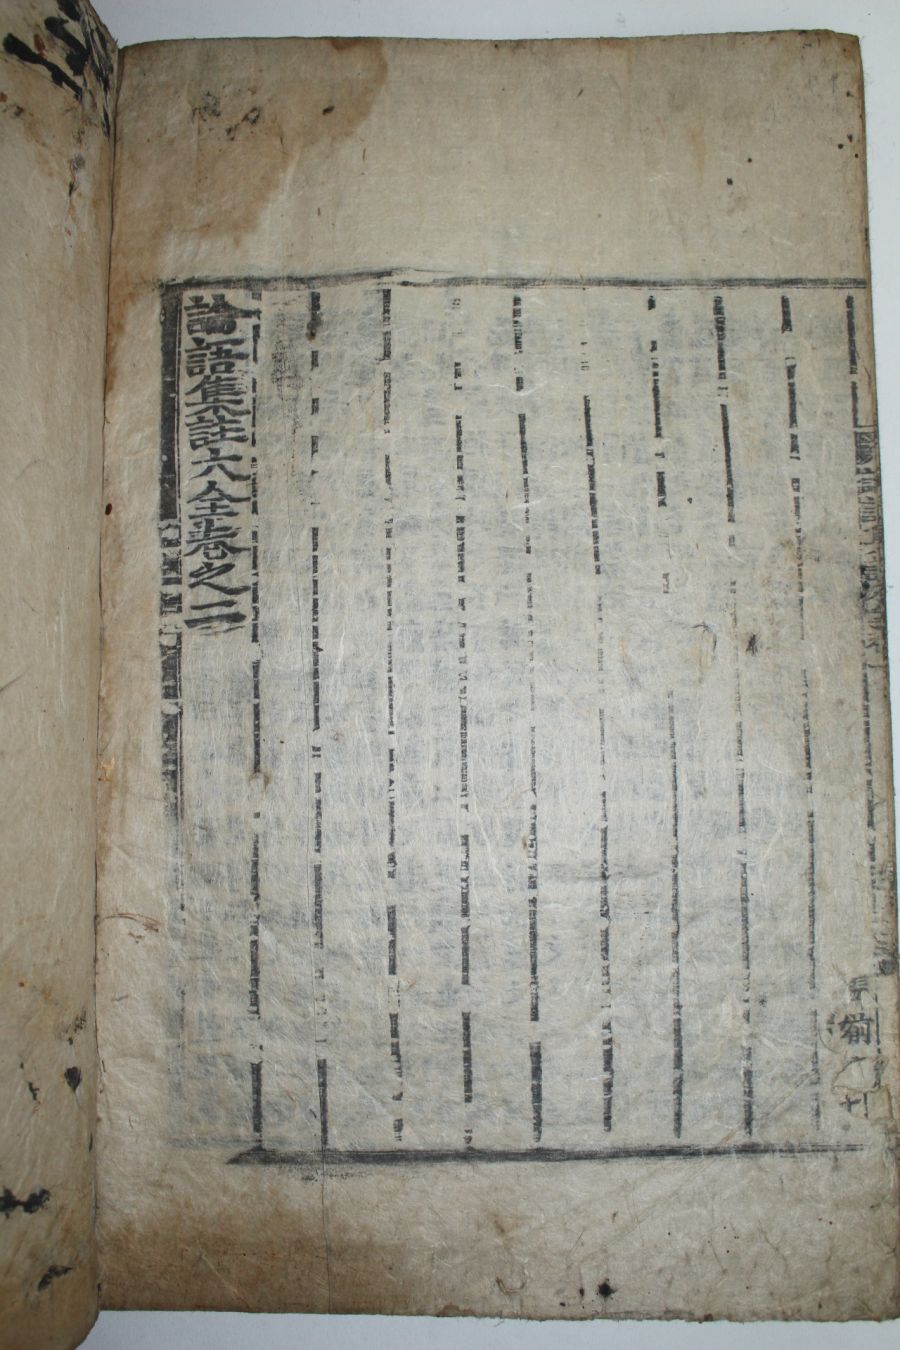 論語集註大全卷之二